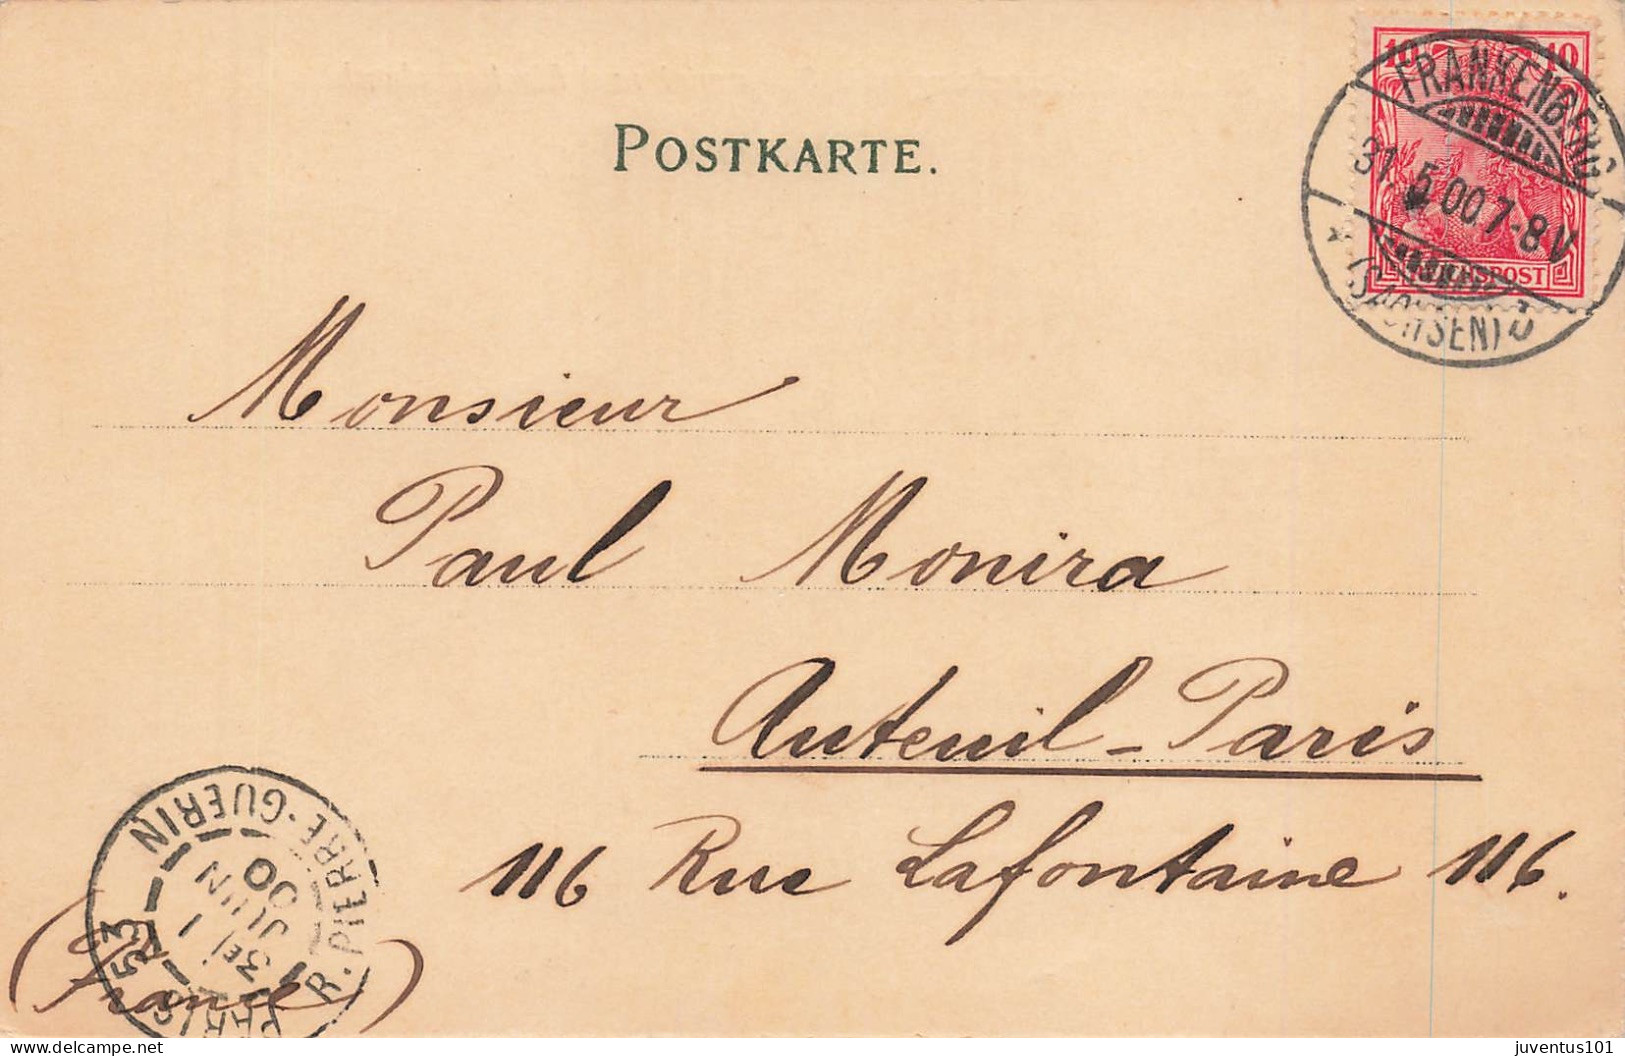 POSTKARTE.
10 10
FRANKENBERG
31. 5. 00 7-8 V
* (SACHSEN) b
REICHSPOST
Monsieur
Paul Monira
Auteuil-Paris
116 Rue Lafontaine 116.
(France)
PARIS 53 R. PIERRE-GUERIN
3E 1
JUIN
00
juventus101